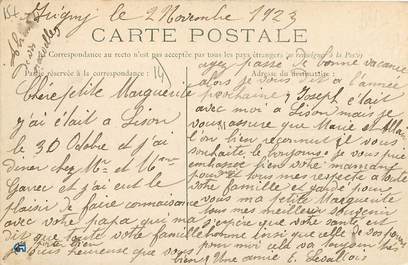 le 2 Novembre 1923
CARTE POSTALE
La Correspondance au recto n'est pas acceptée par tous les pays étrangers (se renseigner à la Poste)
Partie réservée à la correspondance
Adresse du destinataire
Chere petite Marguerite
j'ai était a Lison
30 Octobre et j'ai
diner chez Mr et Mme
et j'ai eut le
plaisir de faire connaissance
avec votre papa qui ma
dit que toute votre famille
porte bien
heureuse que vous
ayez passé de bonne vacance
alors je vous dit a l'année
prochaine Joseph était
avec moi a Lison mais je
vous assure que Marie et
l'on bien reconnut je vous
souhaite le bonjours je vous prie
embrassé pour votre maman
tous mes respect a toute
votre famille et gardé pour
vous ma petite Marguerite
tous mes meilleur souvenir
j'espère que votre santé est
bonne ainsi que celle de vos
pour moi cela va toujour
bien Une amie E. Levallois